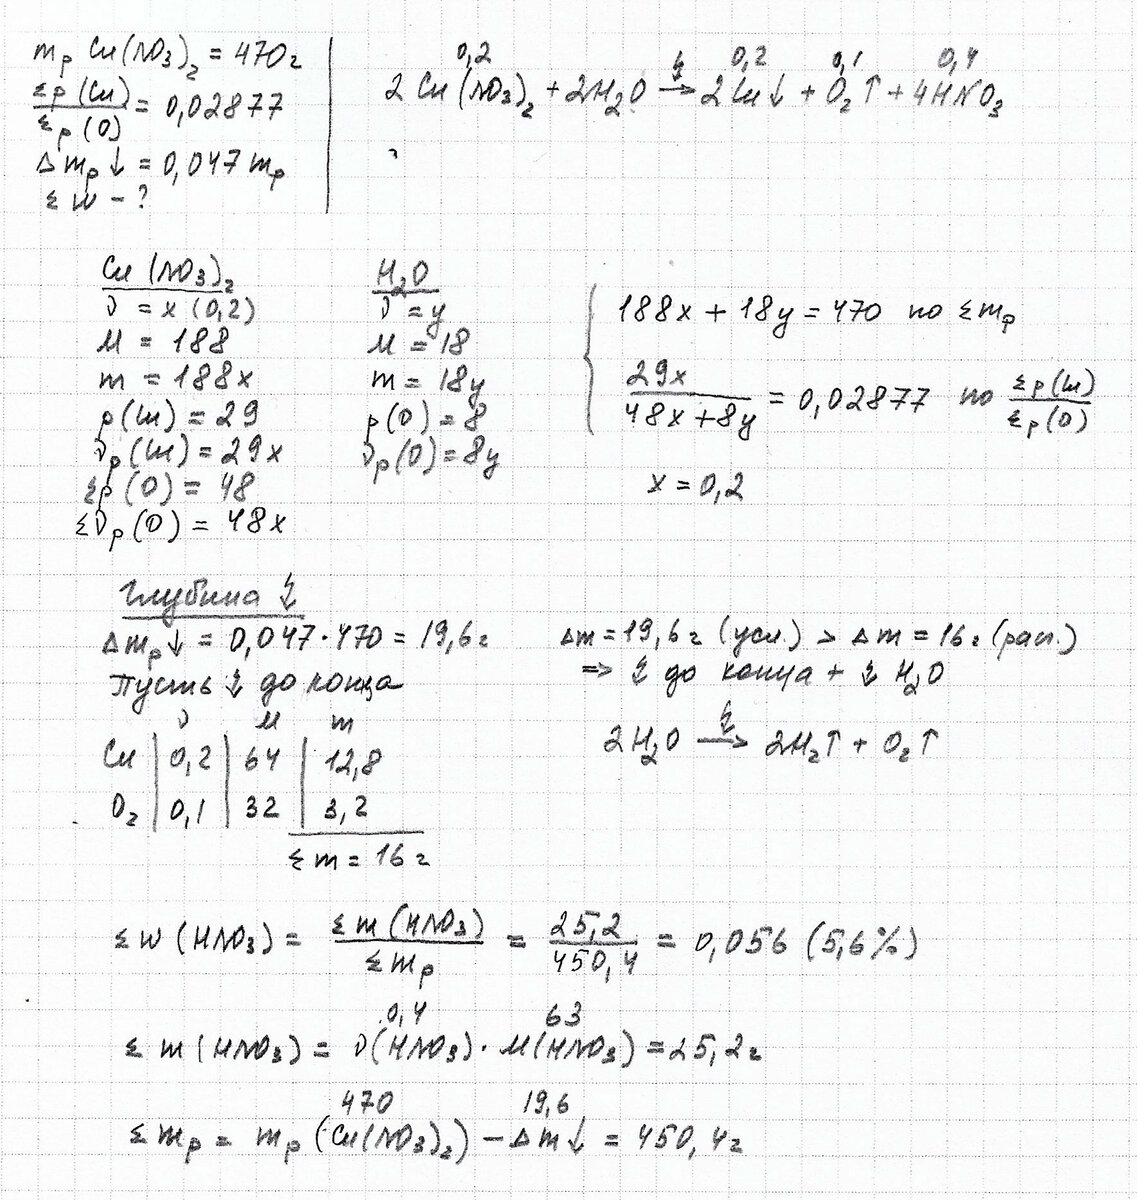 mр Cu(NO₃)₂ = 470г
Σр(Cu)/Σр(O) = 0,02877
Δmр↓ = 0,047mр
Σw - ?
0,2 0,2 0,1 0,4
2Cu(NO₃)₂ + 2H₂O → 2Cu↓ + O₂↑ + 4HNO₃
Cu(NO₃)₂
ν = x (0,2)
M = 188
m = 188x
p(Cu) = 29
νр(Cu) = 29x
Σр(O) = 48
Σνр(O) = 48x
H₂O
ν = y
M = 18
m = 18y
p(O) = 8
νр(O) = 8y
188x + 18y = 470 по Σmр
29x/(48x + 8y) = 0,02877 по Σр(Cu)/Σр(O)
x = 0,2
Глубина ↯
Δmр↓ = 0,047·470 = 19,6г
Пусть ↯ до конца
ν M m
Cu | 0,2 | 64 | 12,8
O₂ | 0,1 | 32 | 3,2
Σm = 16г
Δm = 19,6г (усл.) > Δm = 16г (расч.)
=> ↯ до конца + ↯ H₂O
2H₂O → 2H₂↑ + O₂↑
Σw(HNO₃) = Σm(HNO₃)/Σmр = 25,2/450,4 = 0,056 (5,6%)
0,4 63
Σm(HNO₃) = ν(HNO₃)·M(HNO₃) = 25,2г
470 19,6
Σmр = mр(Cu(NO₃)₂) - Δm↓ = 450,4г